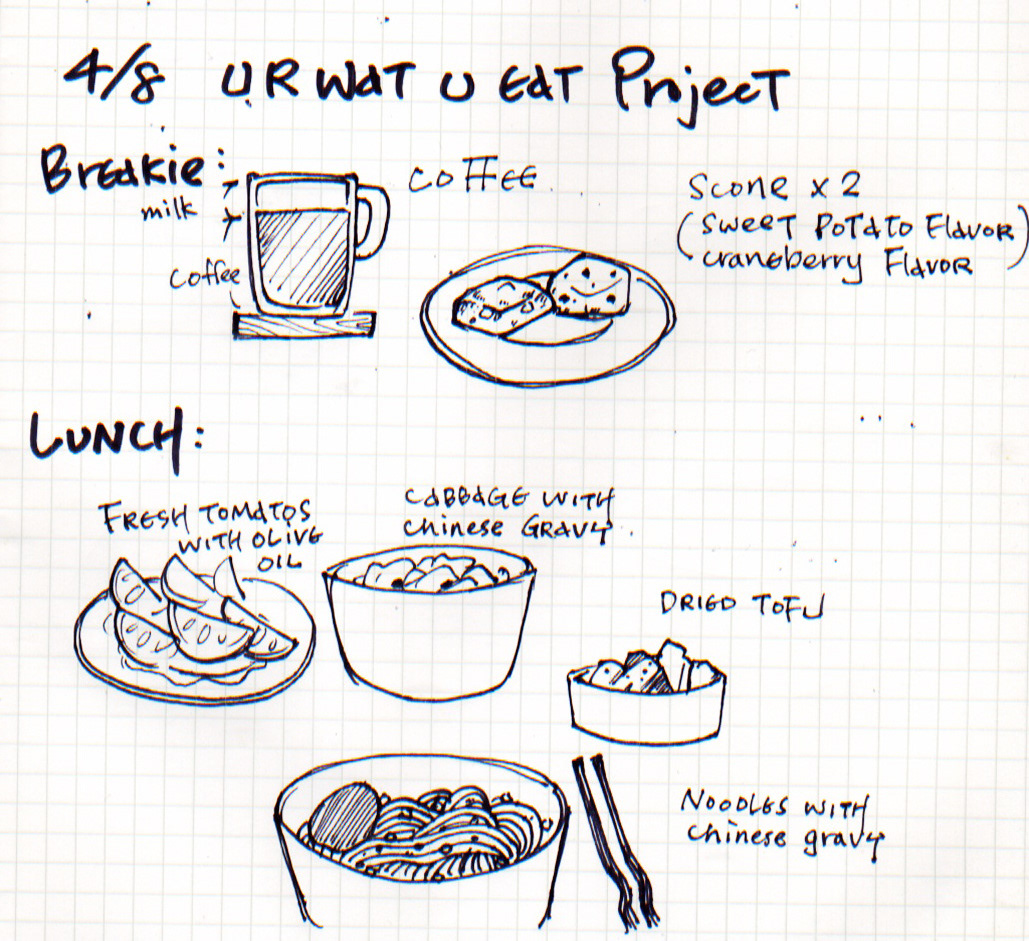 4/8 U R Wat U Eat Project
Breakie:
milk
coffee
coffee
Scone x 2
(sweet potato flavor)
craneberry flavor
LUNCH:
FRESH TOMATOS
WITH OLIVE
OIL
CABBAGE WITH
Chinese GRAVY.
DRIED TOFU
NOODLES WITH
Chinese gravy